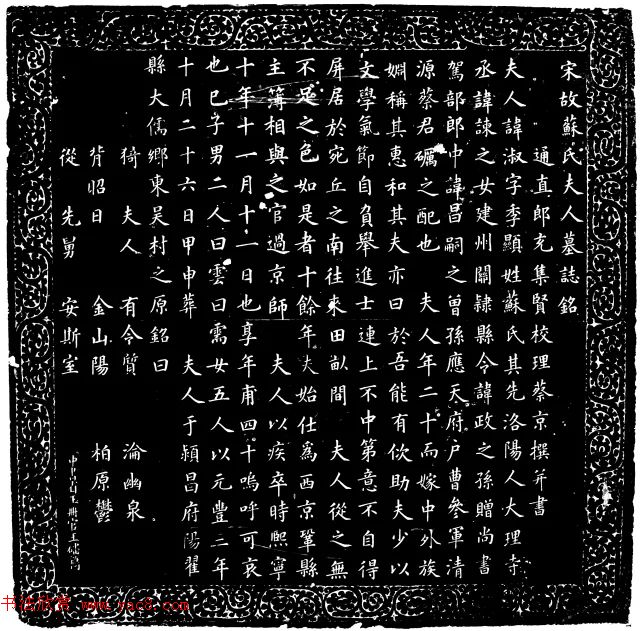 宋故蘇氏夫人墓誌銘
通直郎充集賢校理蔡京撰并書
夫人諱淑字季顯姓蘇氏其先洛陽人大理寺
丞諱諫之女建州關隸縣令諱政之孫贈尚書
駕部郎中諱昌嗣之曾孫應天府户曹參軍清
源蔡君礪之配也 夫人年二十而嫁中外族
婣稱其惠和其夫亦曰於吾能有佽助夫少以
文學氣節自負舉進士連上不中第意不自得
屏居於宛丘之南往來田畝間 夫人從之無
不足之色如是者十餘年夫始仕為西京鞏縣
主簿相與之官過京師 夫人以疾卒時熙寧
十年十一月十一日也享年甫四十嗚呼可哀
也已子男二人曰雲曰需女五人以元豐二年
十月二十六日甲申葬 夫人于潁昌府陽翟
縣大儒鄉東吳村之原銘曰
猗 夫人 有令質 淪幽泉
背昭日 金山陽 柏原鬱
從 先舅 安斯室
书法欣赏 www.yac8.com